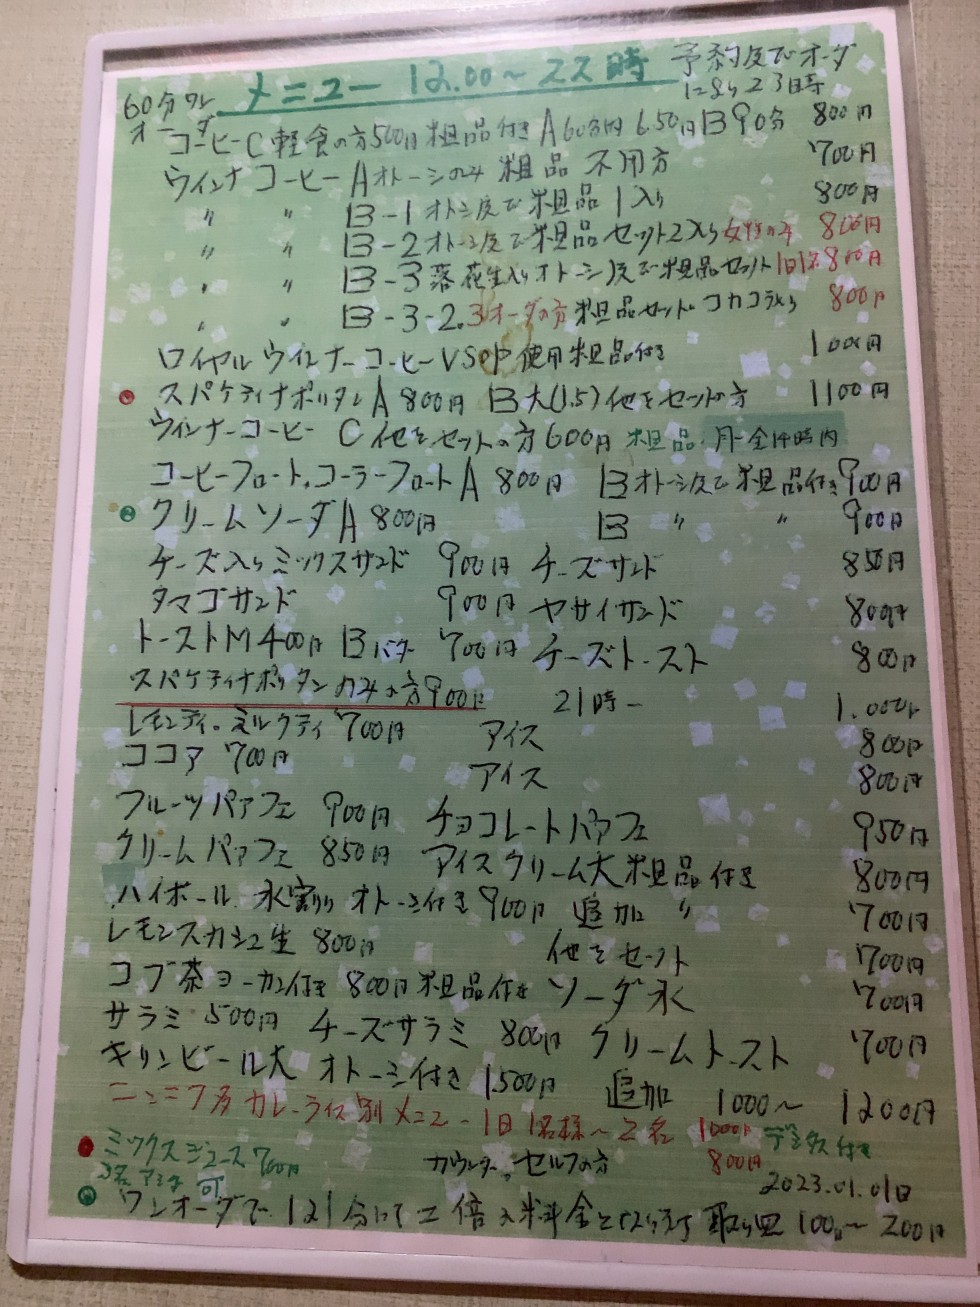 メニュー 12.00〜22時 予約及びオーダ
により23時
60分ワン
オーダ
コーヒーC 軽食の方500円 粗品付き A 60分内 6.50円 B 90分 800円
ウインナコーヒー A オトーシのみ 粗品 不用方 700円
〃 〃 B-1 オトーシ及び粗品1入り 800円
〃 〃 B-2 オトーシ及で粗品セット2入り 女性のみ 800円
〃 〃 B-3 落花生入り オトーシ及で粗品セット 1日1名 800円
〃 〃 B-3-2. 3オーダの方 粗品セット コカコラ入り 800円
ロイヤルウインナーコーヒーVSOP使用粗品付き 1000円
スパケティナポリタン A 800円 B大(1.5)他をセットの方 1100円
ウインナーコーヒー C 他をセットの方600円 粗品・月-金14時内
コーヒーフロート.コーラーフロート A 800円 B オトーシ及で粗品付き900円
クリームソーダ A 800円 B 〃 〃 900円
チーズ入りミックスサンド 900円 チーズサンド 850円
タマゴサンド 900円 ヤサイサンド 800円
トーストM400円 Bバター 700円 チーズトースト 800円
スパケティナポリタンのみの方900円 21時- 1.000円
レモンティ.ミルクティ 700円 アイス 800円
ココア 700円 アイス 800円
フルーツパァフェ 900円 チョコレートパァフェ 950円
クリームパァフェ 850円 アイスクリーム大 粗品付き 800円
ハイボール. 水割り オトーシ付き 900円 追加 〃 700円
レモンスカシュ生 800円 他をセット 700円
コブ茶ヨーカン付き 800円粗品付き ソーダ水 700円
サラミ 500円 チーズサラミ 800円 クリームトースト 700円
キリンビール大 オトーシ付き 1.500円 追加 1000〜 1200円
カレーライス別メニュー 1日1名様〜2名 1000円 付き
ミックスジュース700円 カウンター.セルフの方 800円
可 2023.01.01日
ワンオーダで 121分にて二倍の料金となります 取り皿 100円〜200円